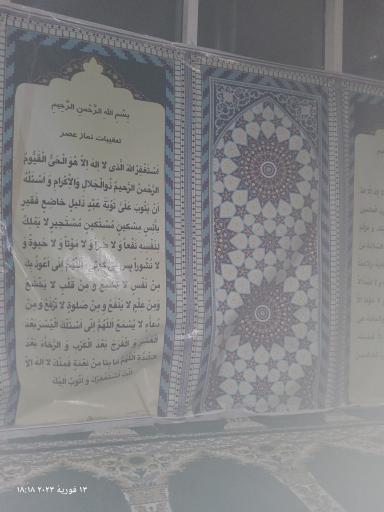 بِسْمِ اللهِ الرَّحْمنِ الرَّحِیمِ
تعقیبات نماز عصر
اَسْتَغْفِرُ اللهَ الَّذی لا اِلهَ اِلاّ هُوَ الْحَیُّ الْقَیُّومُ
الرَّحْمنُ الرَّحیمُ ذُوالْجَلالِ وَالْاِکْرامِ وَ اَسْئَلُهُ
اَنْ یَتُوبَ عَلَیَّ تَوْبَةَ عَبْدٍ ذَلیلٍ خاضِعٍ فَقیرٍ
بائِسٍ مِسْکینٍ مُسْتَکینٍ مُسْتَجیرٍ لا یَمْلِکُ
لِنَفْسِهِ نَفْعاً وَ لا ضَرّاً وَ لا مَوْتاً وَ لا حَیوةً وَ
لا نُشُوراً اَللّهُمَّ اِنّی اَعُوذُ بِکَ
مِنْ نَفْسٍ لا تَشْبَعُ وَ مِنْ قَلْبٍ لا یَخْشَعُ
وَ مِنْ عِلْمٍ لا یَنْفَعُ وَ مِنْ صَلوةٍ لا تُرْفَعُ وَ مِنْ
دُعاءٍ لا یُسْمَعُ اَللّهُمَّ اِنّی اَسْئَلُکَ الْیُسْرَ بَعْدَ
الْعُسْرِ وَ الْفَرَجَ بَعْدَ الْکَرْبِ وَ الرَّخاءَ بَعْدَ
الشِّدَّةِ اَللّهُمَّ ما بِنا مِنْ نِعْمَةٍ فَمِنْکَ لا اِلهَ اِلاّ
اَنْتَ اَسْتَغْفِرُکَ وَ اَتُوبُ اِلَیْکَ
١٣ فوریهٔ ٢٠٢٣ ١٨:١٨